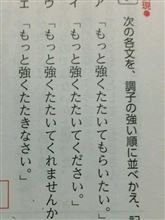 現●
次の各文を、調子の強い順に並べかえ、
ア「もっと強くたたいてもらいたい。」
イ「もっと強くたたいてください。」
ウ「もっと強くたたいてくれませんか
エ「もっと強くたたきなさい。」